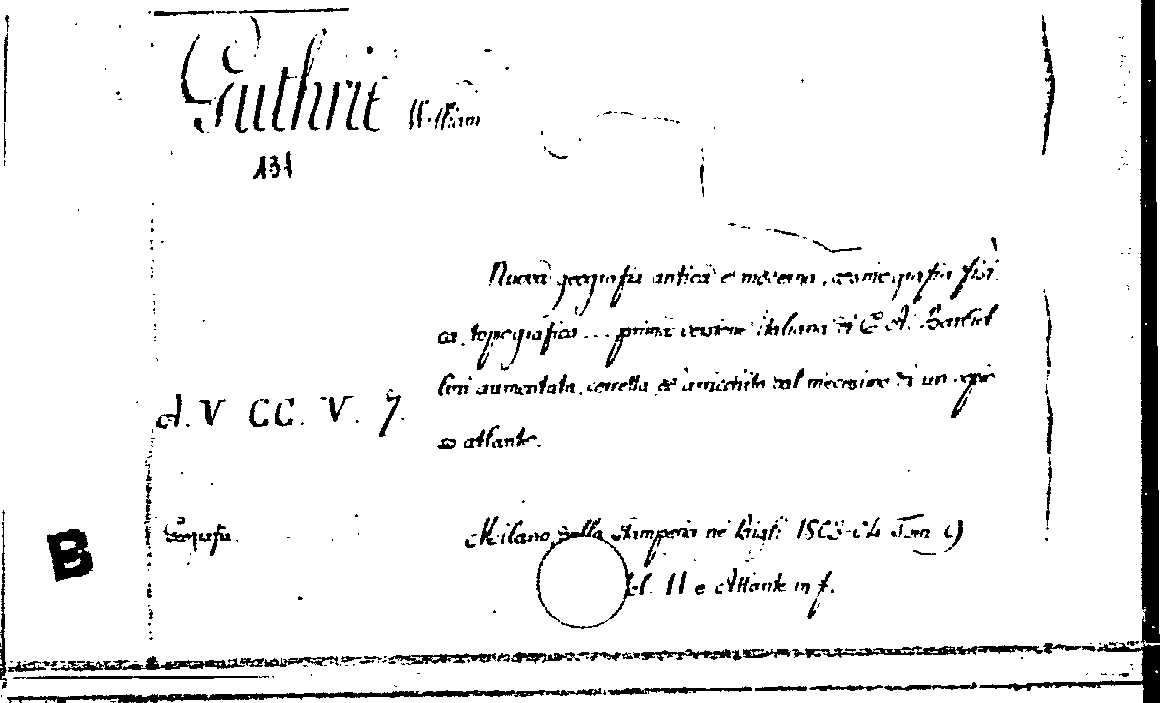 Guthrie William
131
Nuova geografia antica e moderna, cosmografia fisi
ca, topografica ... prima versione italiana di C. A. Bartiel
lini aumentata, corretta ed arricchita dal medesimo di un copio
so atlante.
d. V CC. V. 7.
Geografia.
Milano, dalla stamperia ne' Bigli 1803-04 Tom 9
d. 11 e Atlante in f.
B